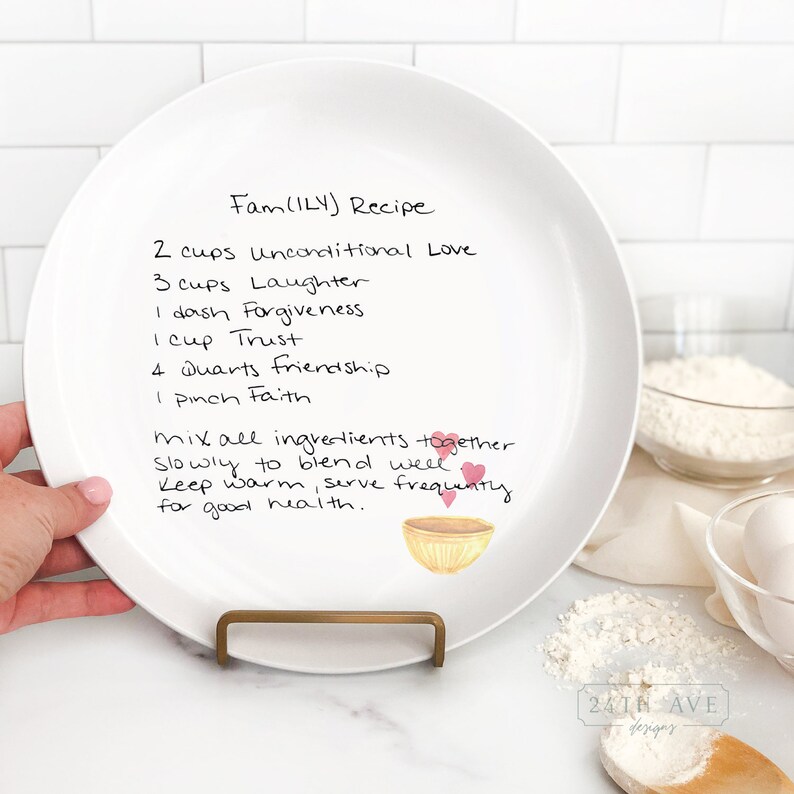 Fam(ILY) Recipe
2 cups Unconditional Love
3 cups Laughter
1 dash Forgiveness
1 cup Trust
4 Quarts friendship
1 pinch Faith
mix all ingredients together
slowly to blend well
Keep warm, serve frequently
for good health.
24TH AVE
designs